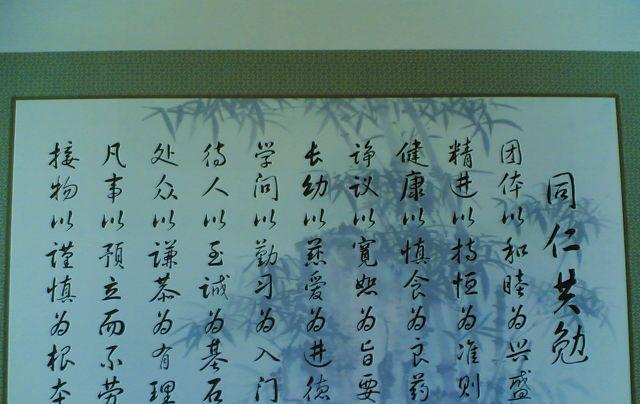 同仁共勉
团体以和睦为兴盛
精进以持恒为准则
健康以慎食为良药
诤议以宽恕为旨要
长幼以慈爱为进德
学问以勤习为入门
待人以至诚为基石
处众以谦恭为有理
凡事以预立而不劳
接物以谨慎为根本